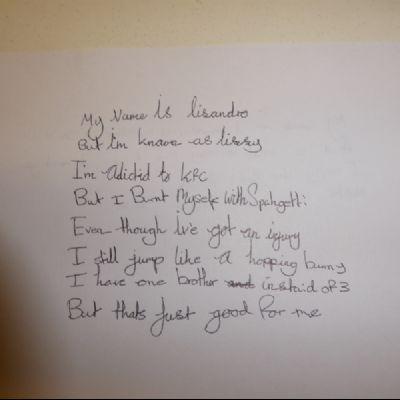 My Name is lisandro
But I'm known as lissy
I'm Adictid to KFC
But I Burnt Myself with Spahgetti
Even though I've got an injury
I still jump like a hopping bunny
I have one brother and instuid of 3
But thats just good for me